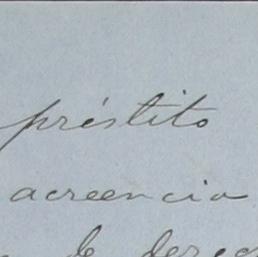 préstito
acreencia
de derec